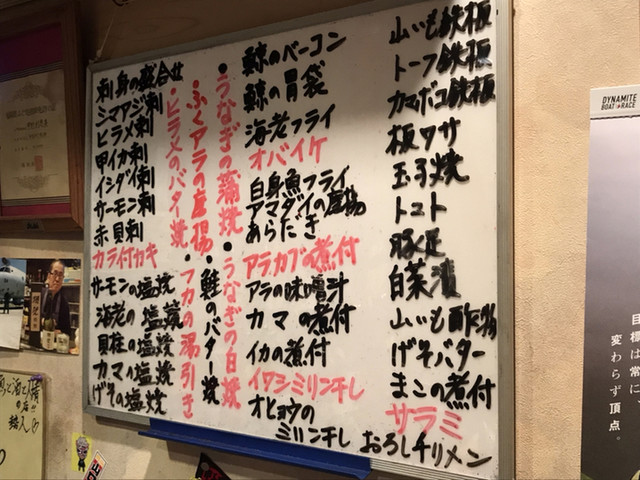 刺身の盛合せ
シマアジ刺
ヒラメ刺
甲イカ刺
イシダイ刺
サーモン刺
赤貝刺
カラ付カキ
サーモンの塩焼
海老の塩焼
貝柱の塩焼
カマの塩焼
げその塩焼
・ヒラメのバター焼
・ふくアラの唐揚
・フカの湯引き
・うなぎの蒲焼
・鮭のバター焼
・うなぎの白焼
鯨のベーコン
鯨の胃袋
海老フライ
オバイケ
白身魚フライ
アマダイの唐揚
あらだき
アラカブの煮付
アラの味噌汁
カマの煮付
イカの煮付
イワシミリン干し
オヒョウの
ミリン干し
山いも鉄板
トーフ鉄板
カマボコ鉄板
板ワサ
玉子焼
トマト
豚足
白菜漬
山いも酢物
げそバター
まこの煮付
サラミ
おろしチリメン
DYNAMITE
BOAT RACE
目標は常に、
変わらず頂点。